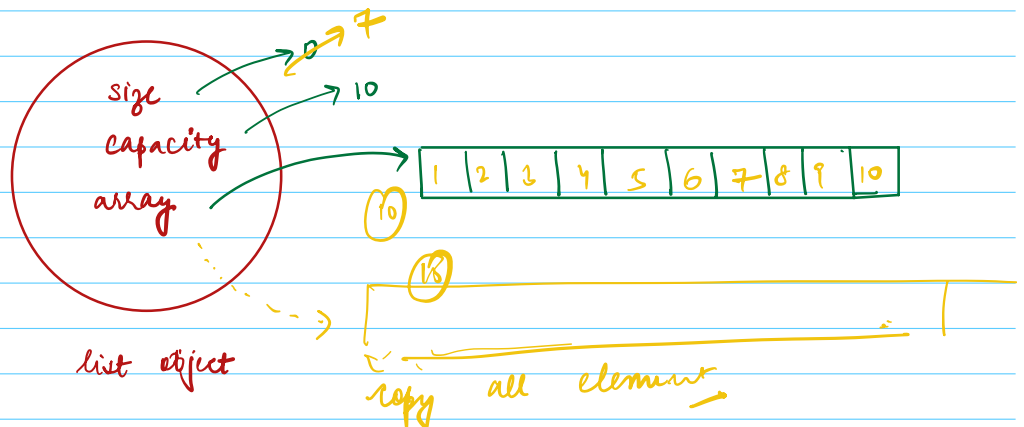 size
0
7
capacity
10
array
1 2 3 4 5 6 7 8 9 10
10
list object
copy all element